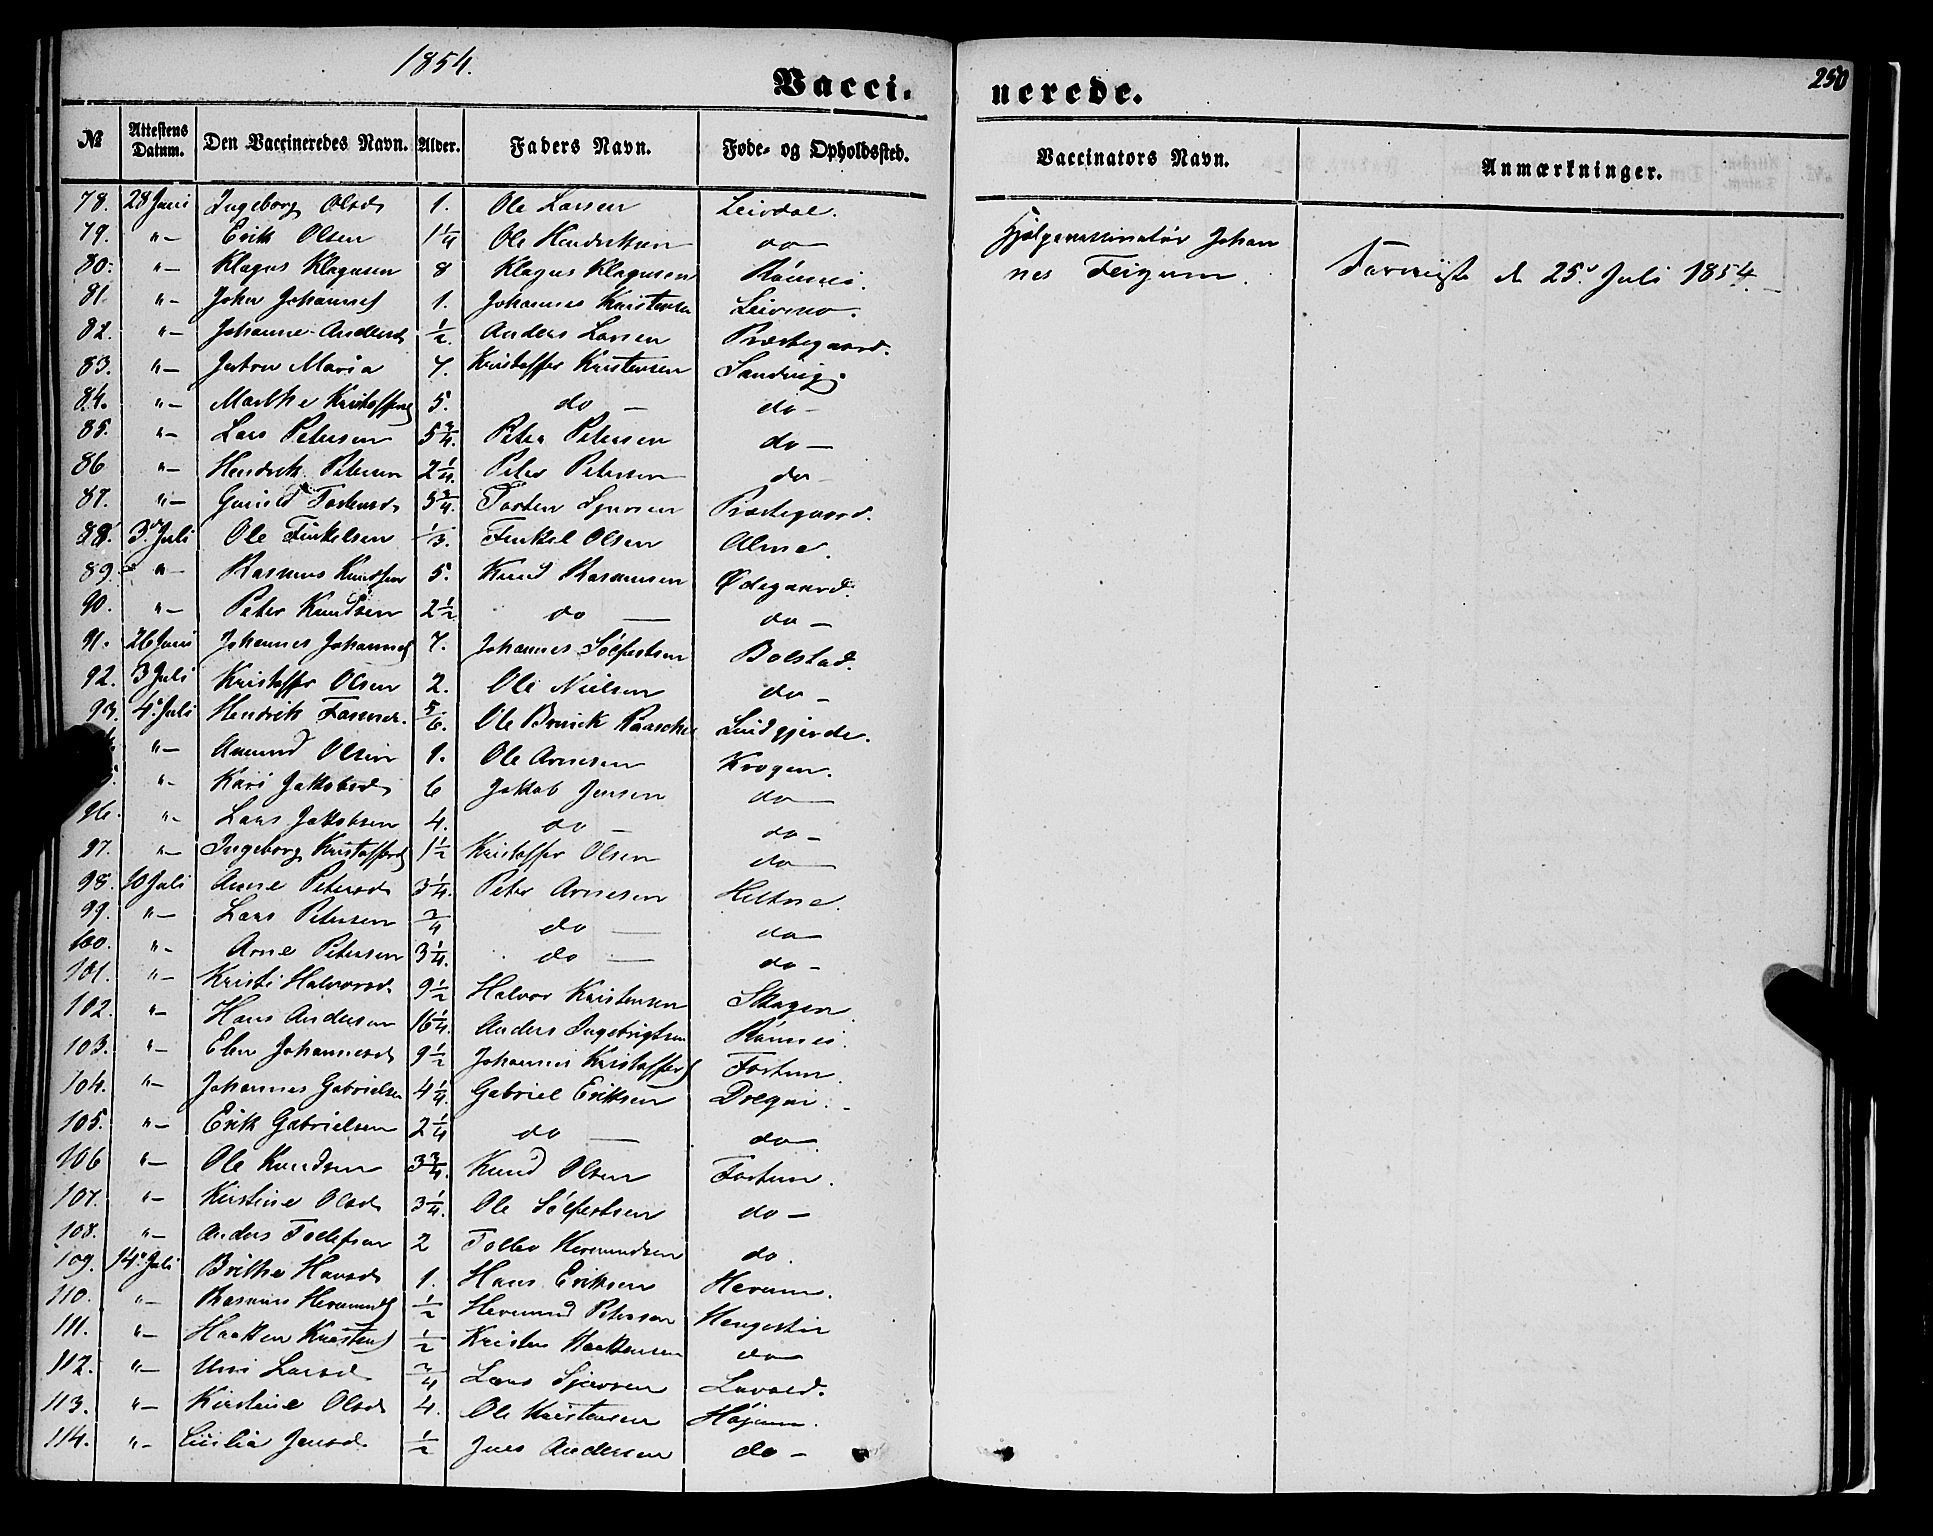 1854.
250
Vacci- nerede.
№ Attestens Datum. Den Vaccineredes Navn. Alder. Faders Navn. Føde- og Opholdssted. Vaccinators Navn. Anmærkninger.
78. 28 Juni Ingeborg Olsd 1. Ole Larsen Leirdal. Hjelpevaccinatör Johan
79. "– Erik Olsen 1 1/4 Ole Hendriksen do – nes Feigum.
80. "– Klagus Klagusen 8 Klagus Klagusen Rönnei. d 25. Juli 1854.
81. "– John Johannes 1. Johannes Kristensen Leirmo.
82. "– Johanne Andersd 1/2. Anders Larsen Præstegaard.
83. "– Maria 7. Kristoffer Kristensen Sandvig.
84. "– Marthe Kristoffersd 5. do – do –
85. "– Lars Petersen 5 3/4. Peter Petersen do –
86 "– Hendrik Petersen 2 1/4. Peter Petersen do –
87. "– Gunild Torstensd 5 3/4. Torsten Præstegaard.
88. 3. Juli Ole Finkelsen 1/3. Finkel Olsen Alme.
89. "– Rasmus Knudsen 5. Knud Rasmusen Ødegaard.
90. "– Peter Knudsen 2 1/2 do – do –
91. 26 Juni Johannes Johannes 7. Johannes Sölfestsen Bolstad.
92. 3 Juli Kristoffer Olsen 2. Ole Nielsen do –
93. 4. Juli Hendrik 5/6. Ole Bruuck Raaschou Lindgjerde.
"– Amund Olsen 1. Ole Arnesen Krogen.
"– Kari Jakobsd 6 Jakob Jensen do –
96. "– Lars Jakobsen 4. do – do –
97. "– Ingeborg Kristoffersd 1 1/2 Kristoffer Olsen do –
98. 10 Juli Anne Petersd 3 1/4. Peter Arnesen Heltne.
99. "– Lars Petersen 3/4 do – do –
100. "– Arne Petersen 3 1/4. do – do –
101. "– Kristi Halvorsd. 9 1/2 Halvor Kristensen Skagen.
102. "– Hans Andersen 16 1/4. Anders Ingebrigtsen Rönnei.
103. "– Elen Johannesd 9 1/2 Johannes Kristoffers Fortun.
104. "– Johannes Gabrielsen 4 1/4. Gabriel Eriksen Dregni.
105. "– Erik Gabrielsen 2 1/4 do – do –
106 "– Ole Knudsen 3 3/4. Knud Olsen Fortun.
107. "– Kirstine Olsd 3 1/4. Ole Sölfestsen do –
108. "– Anders Tollefsen 2 Tollev Hermundsen do.
109. 14. Juli Brithe Hansd 1. Hans Eriksen Herum.
110. "– Rasmus Hermunds 1/2 Hermund Petersen
111. "– Haakken Kristens 1/2 Kristen Haakkensen do –
112. "– Uni Larsd 3/4 Lars Sjursen
113. "– Kirstine Olsd 4. Ole Kristensen Højum.
114. "– Cicilia Jensd. 1/2 Jens Andersen do –